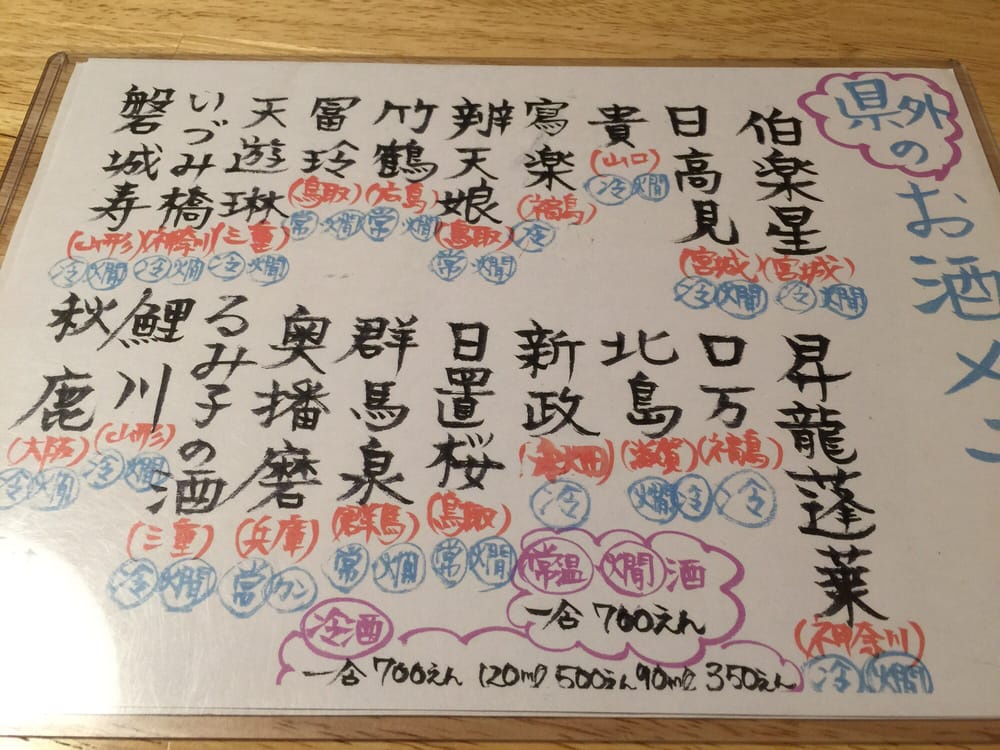 県外の
お酒メニ
伯楽星
(宮城)
冷 燗
日高見
(宮城)
冷 燗
貴
(山口)
冷 燗
寫楽
(福島)
冷
辨天娘
(鳥取)
常 燗
竹鶴
常 燗
冨玲
(鳥取)
常 燗
天遊琳
(三重)
冷 燗
いづみ橋
(神奈川)
冷 燗
磐城寿
(山形)
冷 燗
昇龍蓬莱
(神奈川)
冷 燗
口万
(福島)
冷
北島
(滋賀)
燗 冷
新政
(秋田)
冷
日置桜
(鳥取)
常 燗
群馬泉
(群馬)
常 燗
奥播磨
(兵庫)
常 カン
るみ子の酒
(三重)
冷 燗
鯉川
(山形)
冷 燗
秋鹿
(大阪)
冷 燗
常温 燗酒
一合 700えん
冷酒
一合 700えん 120ml 500えん 90ml 350えん